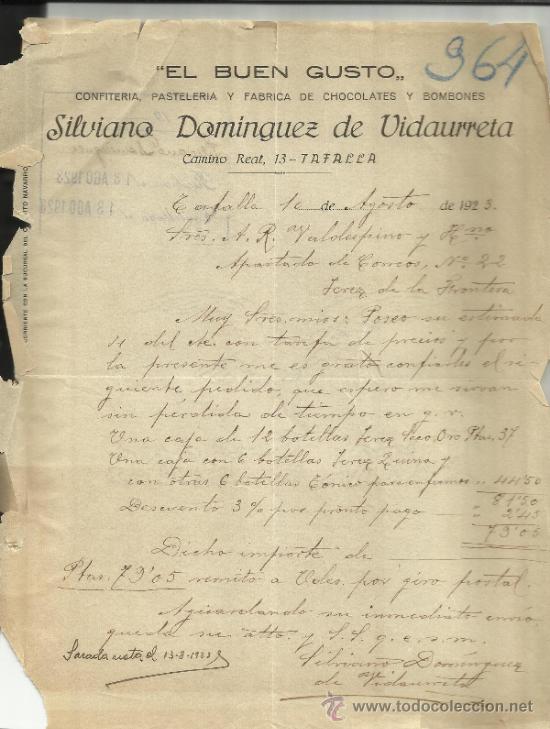 964
"EL BUEN GUSTO„
CONFITERIA, PASTELERIA Y FABRICA DE CHOCOLATES Y BOMBONES
Silviano Dominguez de Vidaurreta
Camino Real, 13 - TAFALLA
13 AGO 1923
13 AGO 1923
CORRIENTE CON LA SUCURSAL DEL CRÉDITO NAVARRO
Tafalla 10 de Agosto de 1923.
Sres. A. R. Valdespino y Hno
Apartado de Correos, No 22
Jerez de la Frontera
Muy Sres. mios: Poseo su estimada
del . con tarifa de precios y por
la presente me es grato confiarles el si-
guiente pedido, que espero me sirvan
sin pérdida de tiempo en g. v.
Una caja de 12 botellas Jerez Seco, Oro Ptas. 37
Una caja con 6 botellas Jerez Quina y
con otras 6 botellas Tónico para enfermos " 44'50
81'50
Descuento 3 % por pronto pago " 2'45
79'05
Dicho importe de
Ptas. 79'05 remito a Vdes. por giro postal.
Aguardando su inmediato envío
queda su atto. y S. S. q. e. s. m.
Silviano Domínguez
de Vidaurreta
13-8-1923
todocoleccion.net